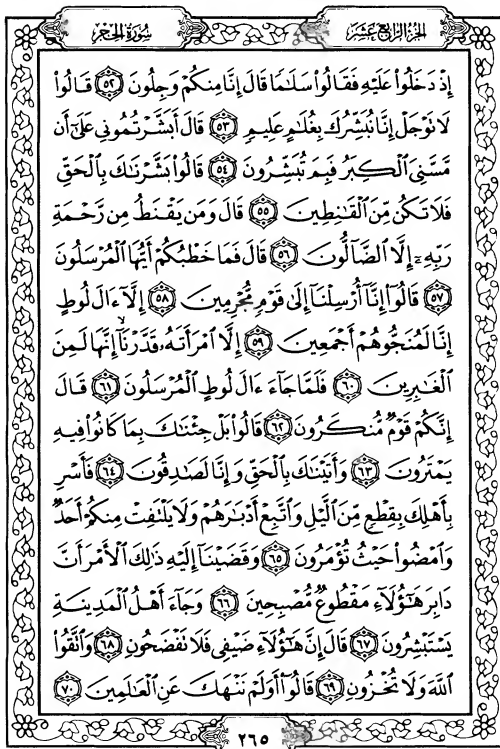 الجزء الرابع عشر
سورة الحجر
إِذْ دَخَلُوا۟ عَلَيْهِ فَقَالُوا۟ سَلَٰمًا قَالَ إِنَّا مِنكُمْ وَجِلُونَ ۝٥٢ قَالُوا۟
لَا تَوْجَلْ إِنَّا نُبَشِّرُكَ بِغُلَٰمٍ عَلِيمٍ ۝٥٣ قَالَ أَبَشَّرْتُمُونِى عَلَىٰٓ أَن
مَّسَّنِىَ ٱلْكِبَرُ فَبِمَ تُبَشِّرُونَ ۝٥٤ قَالُوا۟ بَشَّرْنَٰكَ بِٱلْحَقِّ
فَلَا تَكُن مِّنَ ٱلْقَٰنِطِينَ ۝٥٥ قَالَ وَمَن يَقْنَطُ مِن رَّحْمَةِ
رَبِّهِۦٓ إِلَّا ٱلضَّآلُّونَ ۝٥٦ قَالَ فَمَا خَطْبُكُمْ أَيُّهَا ٱلْمُرْسَلُونَ
۝٥٧ قَالُوٓا۟ إِنَّآ أُرْسِلْنَآ إِلَىٰ قَوْمٍ مُّجْرِمِينَ ۝٥٨ إِلَّآ ءَالَ لُوطٍ
إِنَّا لَمُنَجُّوهُمْ أَجْمَعِينَ ۝٥٩ إِلَّا ٱمْرَأَتَهُۥ قَدَّرْنَآ إِنَّهَا لَمِنَ
ٱلْغَٰبِرِينَ ۝٦٠ فَلَمَّا جَآءَ ءَالَ لُوطٍ ٱلْمُرْسَلُونَ ۝٦١ قَالَ
إِنَّكُمْ قَوْمٌ مُّنكَرُونَ ۝٦٢ قَالُوا۟ بَلْ جِئْنَٰكَ بِمَا كَانُوا۟ فِيهِ
يَمْتَرُونَ ۝٦٣ وَأَتَيْنَٰكَ بِٱلْحَقِّ وَإِنَّا لَصَٰدِقُونَ ۝٦٤ فَأَسْرِ
بِأَهْلِكَ بِقِطْعٍ مِّنَ ٱلَّيْلِ وَٱتَّبِعْ أَدْبَٰرَهُمْ وَلَا يَلْتَفِتْ مِنكُمْ أَحَدٌ
وَٱمْضُوا۟ حَيْثُ تُؤْمَرُونَ ۝٦٥ وَقَضَيْنَآ إِلَيْهِ ذَٰلِكَ ٱلْأَمْرَ أَنَّ
دَابِرَ هَٰٓؤُلَآءِ مَقْطُوعٌ مُّصْبِحِينَ ۝٦٦ وَجَآءَ أَهْلُ ٱلْمَدِينَةِ
يَسْتَبْشِرُونَ ۝٦٧ قَالَ إِنَّ هَٰٓؤُلَآءِ ضَيْفِى فَلَا تَفْضَحُونِ ۝٦٨ وَٱتَّقُوا۟
ٱللَّهَ وَلَا تُخْزُونِ ۝٦٩ قَالُوٓا۟ أَوَلَمْ نَنْهَكَ عَنِ ٱلْعَٰلَمِينَ ۝٧٠
٢٦٥